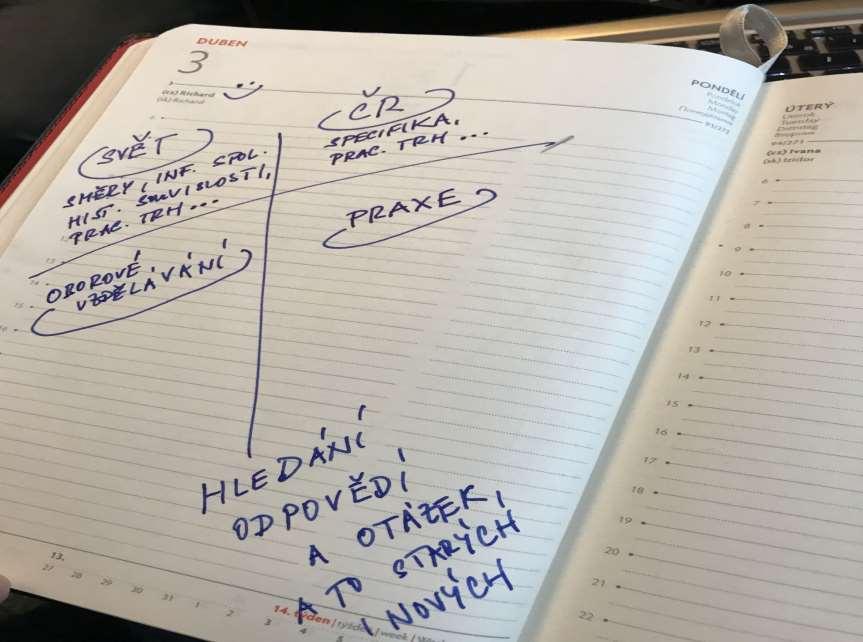 DUBEN
3
(cz) Richard
(sk) Richard
SVĚT
SMĚRY, INF. SPOL.
HIST. SOUVISLOSTI,
PRAC. TRH...
OBOROVÉ
VZDĚLÁVÁNÍ
ČR
SPECIFIKA,
PRAC. TRH...
PRAXE
HLEDÁNÍ
ODPOVĚDÍ
A OTÁZEK,
A TO STARÝCH
I NOVÝCH
13.
27 28 29 30 31 1 2
14. týden | týždeň | week |
3 4 5
PONDĚLÍ
Pondelok
Monday
Montag
93/272
ÚTERÝ
Utorok
Tuesday
Dienstag
94/271
(cz) Ivana
(sk) Izidor
6
7
8
9
10
11
12
13
14
15
16
17
18
19
20
21
22